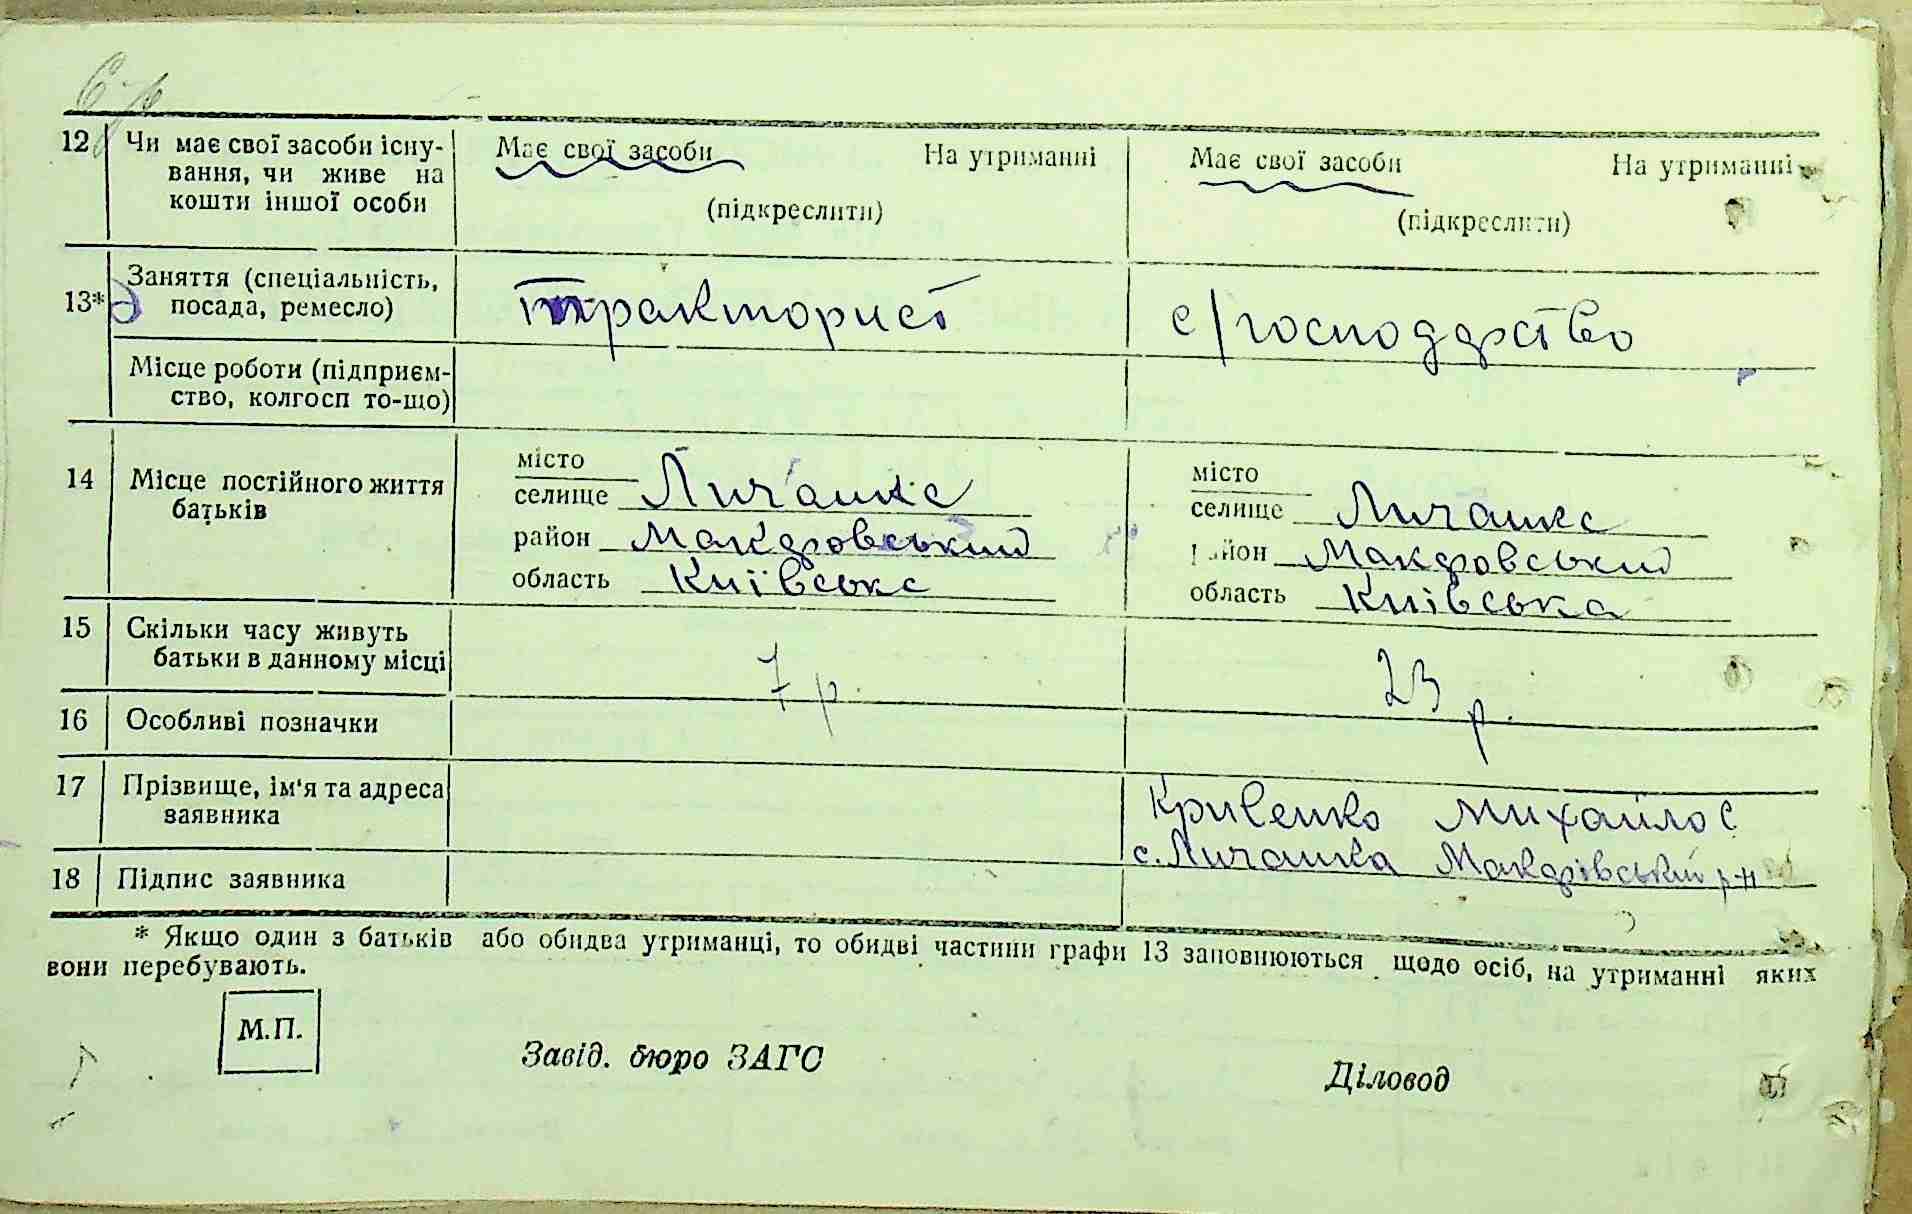 12 Чи має свої засоби існу- Має свої засоби На утриманні Має свої засоби На утриманні
вання, чи живе на
кошти іншої особи (підкреслити) (підкреслити)
13* Заняття (спеціальність, тракторист с/господарство
посада, ремесло)
Місце роботи (підприєм-
ство, колгосп то-що)
місто місто
14 Місце постійного життя селище Личанка селище Личанка
батьків район Макарівський район Макаровський
область Київська область Київська
15 Скільки часу живуть 7 р. 23 р.
батьки в данному місці
16 Особливі позначки
17 Прізвище, ім'я та адреса Кривенко Михайло С
заявника с. Личанка Макарівський р-н
18 Підпис заявника
* Якщо один з батьків або обидва утриманці, то обидві частини графи 13 заповнюються щодо осіб, на утриманні яких
вони перебувають.
М.П.
Завід. бюро ЗАГС Діловод